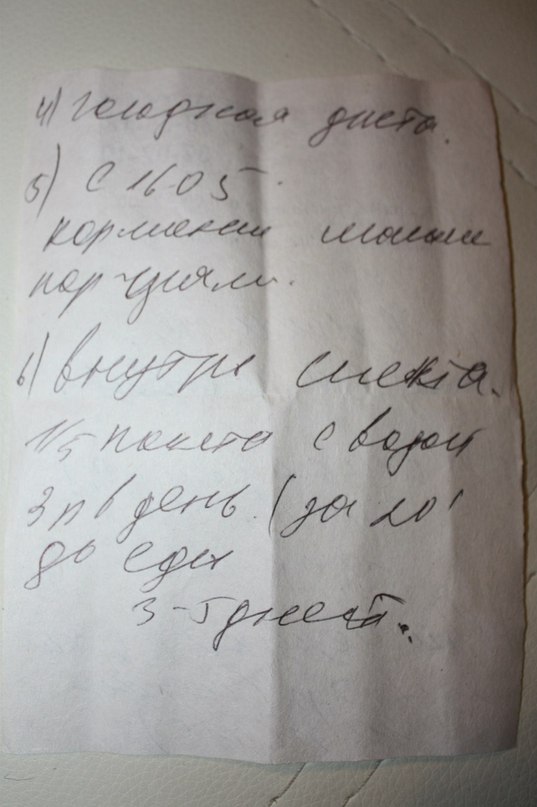 4) голодная диета.
5) с 16 05.
кормление малыми
порциями.
6) внутрь смекта.
1/5 пакета с водой
3 р в день. (за 20'
до еды
3-5 дней.